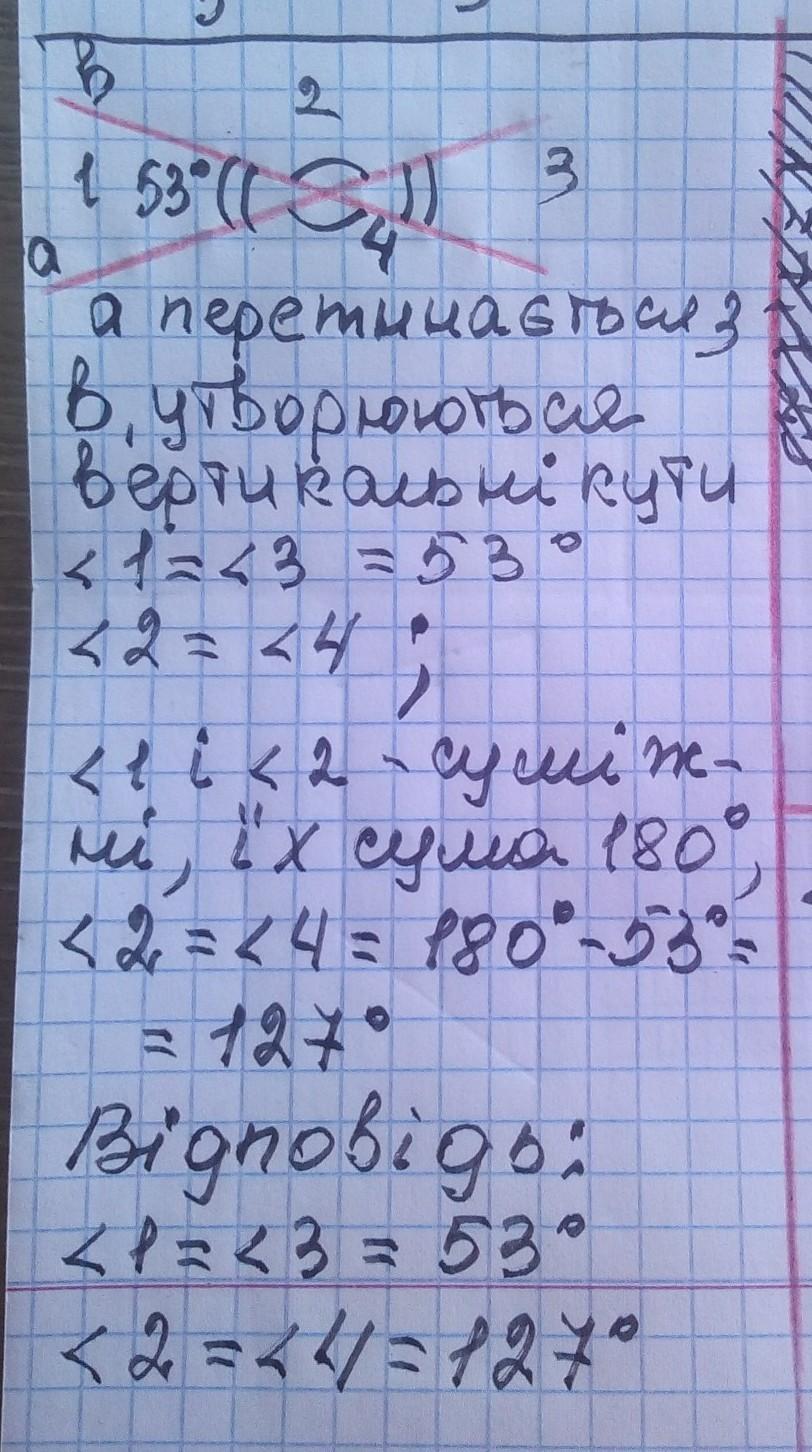 в
2
1 53° 3
4
а
а перетинається з
в, утворюються
вертикальні кути
<1 = <3 = 53°
<2 = <4 ;
<1 і <2 - суміж-
ні, їх сума 180°,
<2 = <4 = 180° - 53° =
= 127°
Відповідь:
<1 = <3 = 53°
<2 = <4 = 127°